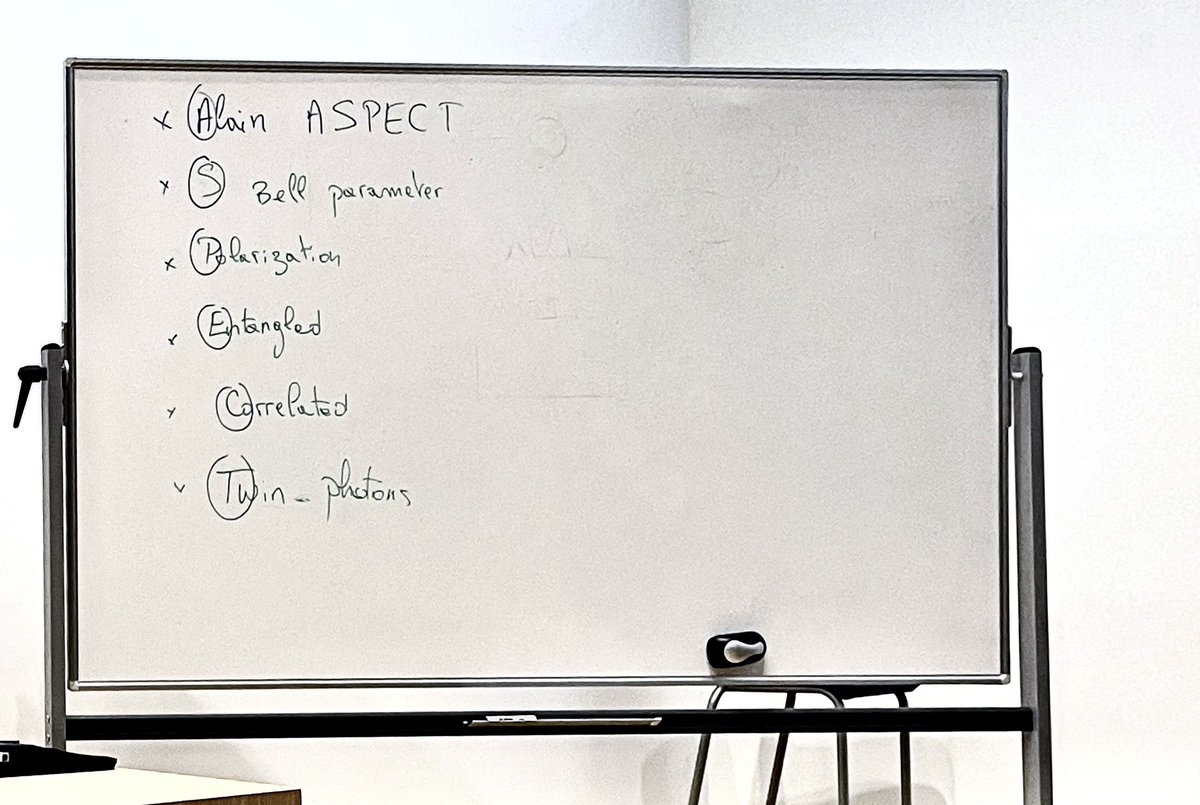 x Alain ASPECT
x S Bell parameter
x Polarization
x Entangled
x Correlated
v Twin - photons